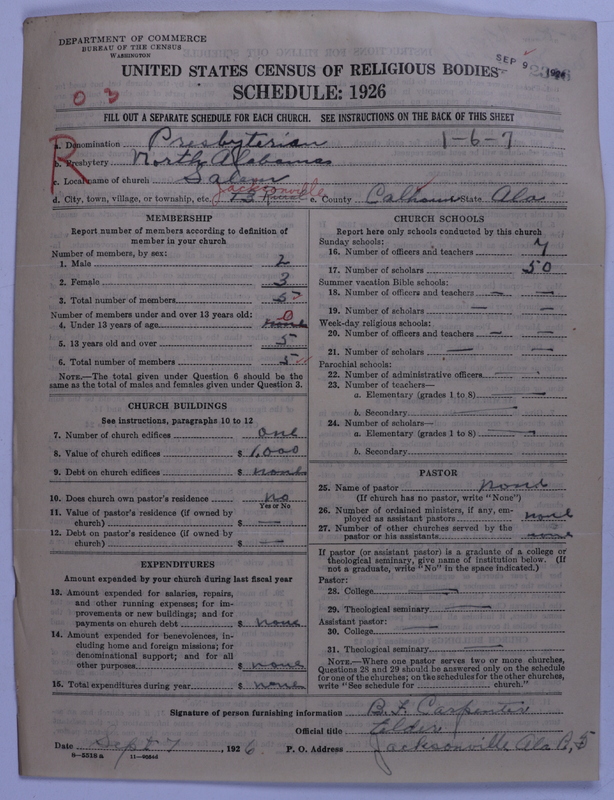 DEPARTMENT OF COMMERCE
BUREAU OF THE CENSUS
WASHINGTON
SEP 9 1926
UNITED STATES CENSUS OF RELIGIOUS BODIES
SCHEDULE: 1926
0 3
FILL OUT A SEPARATE SCHEDULE FOR EACH CHURCH. SEE INSTRUCTIONS ON THE BACK OF THIS SHEET
R
a. Denomination Presbyterian 1-6-7
b. Presbytery North Alabama
c. Local name of church Salem
d. City, town, village, or township, etc. Jacksonville Rural e. County Calhoun State Ala
MEMBERSHIP
Report number of members according to definition of
member in your church
Number of members, by sex:
1. Male 2
2. Female 3
3. Total number of members 5
Number of members under and over 13 years old:
4. Under 13 years of age 0 None
5. 13 years old and over 5
6. Total number of members 5
NOTE.—The total given under Question 6 should be
the same as the total of males and females given under Question 3.
CHURCH BUILDINGS
See instructions, paragraphs 10 to 12
7. Number of church edifices one
8. Value of church edifices $ 1,000
9. Debt on church edifices $ none
10. Does church own pastor's residence no
Yes or No
11. Value of pastor's residence (if owned by
church) $ —
12. Debt on pastor's residence (if owned by
church) $ —
EXPENDITURES
Amount expended by your church during last fiscal year
13. Amount expended for salaries, repairs,
and other running expenses; for im-
provements or new buildings; and for
payments on church debt $ none
14. Amount expended for benevolences, in-
cluding home and foreign missions; for
denominational support; and for all
other purposes $ none
15. Total expenditures during year $ none
CHURCH SCHOOLS
Report here only schools conducted by this church
Sunday schools:
16. Number of officers and teachers 7
17. Number of scholars 50
Summer vacation Bible schools:
18. Number of officers and teachers — —
19. Number of scholars — —
Week-day religious schools:
20. Number of officers and teachers — —
21. Number of scholars — —
Parochial schools:
22. Number of administrative officers —
23. Number of teachers—
a. Elementary (grades 1 to 8) —
b. Secondary —
24. Number of scholars—
a. Elementary (grades 1 to 8) —
b. Secondary
PASTOR
25. Name of pastor none
(If church has no pastor, write "None")
26. Number of ordained ministers, if any, em-
ployed as assistant pastors none
27. Number of other churches served by the
pastor or his assistants none
If pastor (or assistant pastor) is a graduate of a college or
theological seminary, give name of institution below. (If
not a graduate, write "No" in the space indicated.)
Pastor:
28. College —
29. Theological seminary —
Assistant pastor:
30. College —
31. Theological seminary —
NOTE.—Where one pastor serves two or more churches,
Questions 28 and 29 should be answered only on the schedule
for one of the churches; on the schedules for the other churches,
write "See schedule for ........ church."
Signature of person furnishing information B. F. Carpenter
Official title Elder
Date Sept 7, 1926. P. O. Address Jacksonville Ala R, 5
8—5518a 11—9984